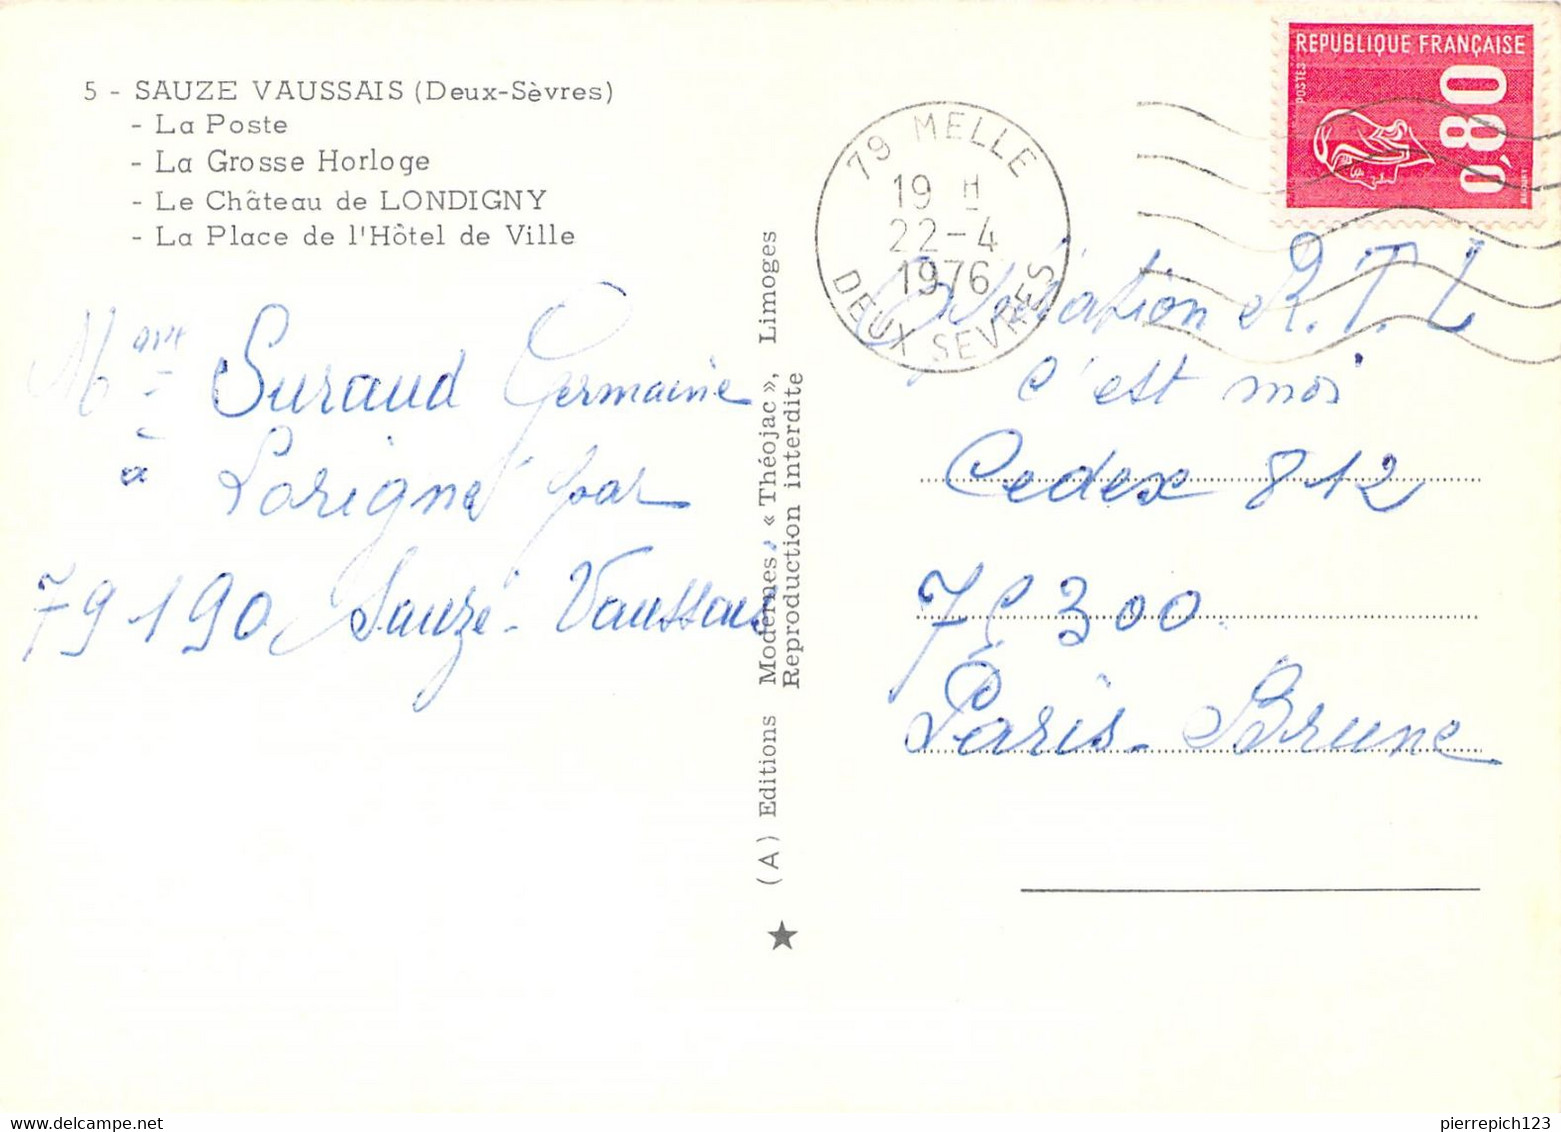 5 - SAUZE VAUSSAIS (Deux-Sèvres)
- La Poste
- La Grosse Horloge
- Le Château de LONDIGNY
- La Place de l'Hôtel de Ville
Mme Suraud Germaine
à Lorigné par
79190 Sauzé-Vaussais
(A) Editions Modernes, « Théojac », Limoges
Reproduction interdite
REPUBLIQUE FRANÇAISE
POSTES
0,80
79 MELLE
19 H
22-4
1976
DEUX SEVRES
R.T.L
c'est moi
Cedex 812
300
Paris-Brune
pierrepich123